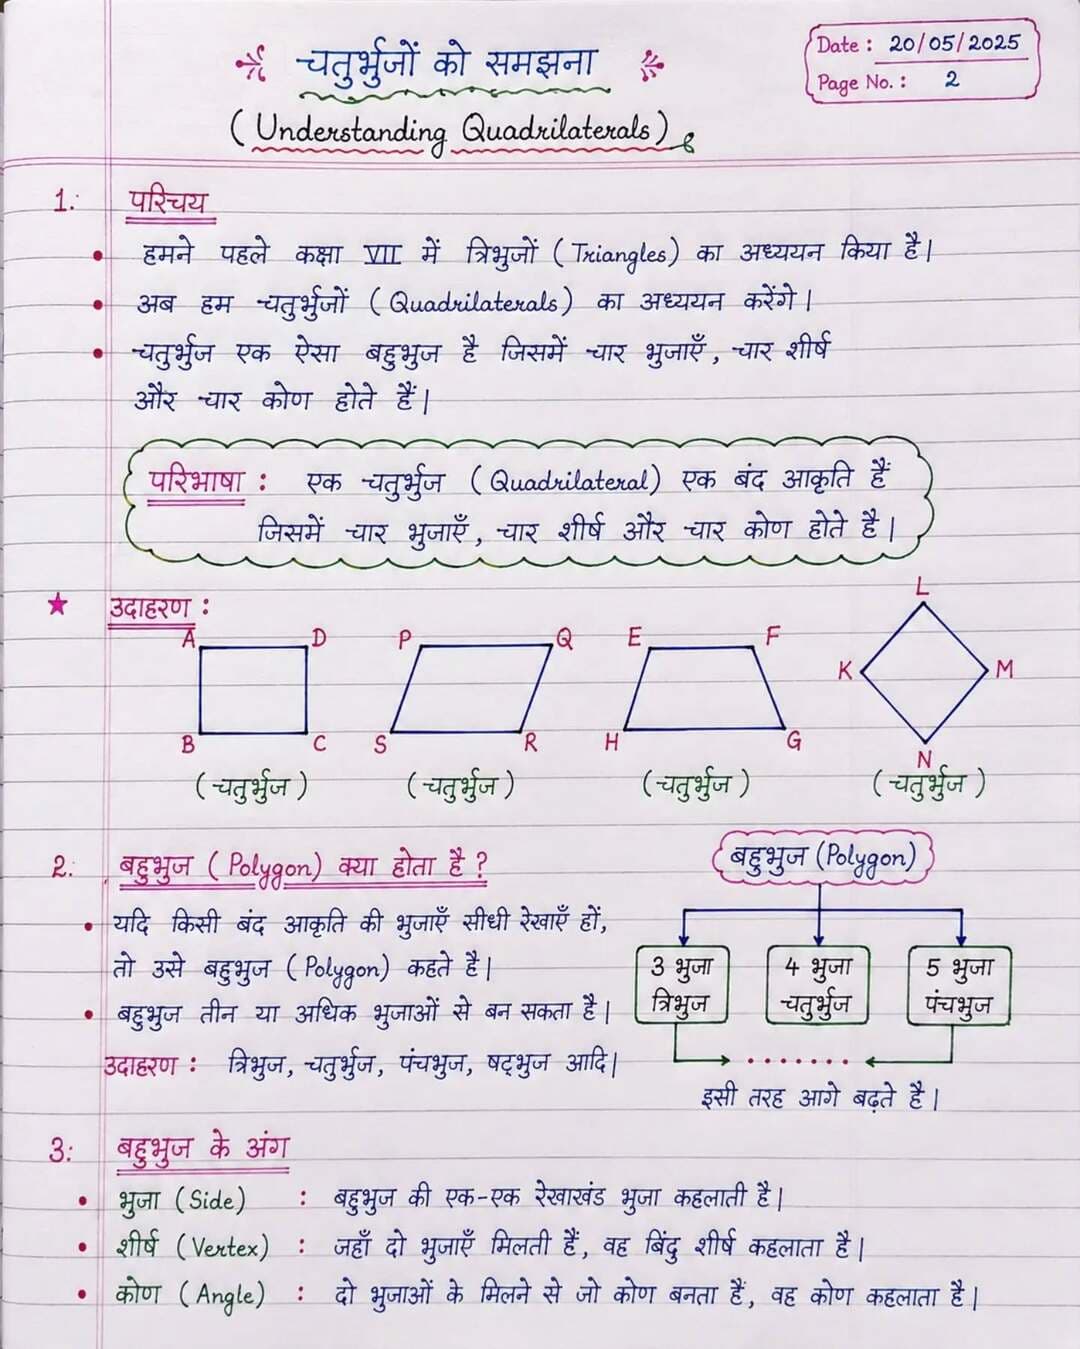 चतुर्भुजों को समझना
(Understanding Quadrilaterals)
Date : 20/05/2025
Page No. : 2
1. परिचय
• हमने पहले कक्षा VII में त्रिभुजों (Triangles) का अध्ययन किया है।
• अब हम चतुर्भुजों (Quadrilaterals) का अध्ययन करेंगे।
• चतुर्भुज एक ऐसा बहुभुज है जिसमें चार भुजाएँ, चार शीर्ष
और चार कोण होते हैं।
परिभाषा : एक चतुर्भुज (Quadrilateral) एक बंद आकृति हैं
जिसमें चार भुजाएँ, चार शीर्ष और चार कोण होते है।
★ उदाहरण :
A D B C
P Q S R
E F H G
L K M N
(चतुर्भुज) (चतुर्भुज) (चतुर्भुज) (चतुर्भुज)
2. बहुभुज (Polygon) क्या होता है ?
• यदि किसी बंद आकृति की भुजाएँ सीधी रेखाएँ हों,
तो उसे बहुभुज (Polygon) कहते है।
• बहुभुज तीन या अधिक भुजाओं से बन सकता है।
उदाहरण : त्रिभुज, चतुर्भुज, पंचभुज, षट्भुज आदि।
बहुभुज (Polygon)
3 भुजा
त्रिभुज
4 भुजा
चतुर्भुज
5 भुजा
पंचभुज
.......
इसी तरह आगे बढ़ते है।
3. बहुभुज के अंग
• भुजा (Side) : बहुभुज की एक-एक रेखाखंड भुजा कहलाती है।
• शीर्ष (Vertex) : जहाँ दो भुजाएँ मिलती हैं, वह बिंदु शीर्ष कहलाता है।
• कोण (Angle) : दो भुजाओं के मिलने से जो कोण बनता हैं, वह कोण कहलाता है।